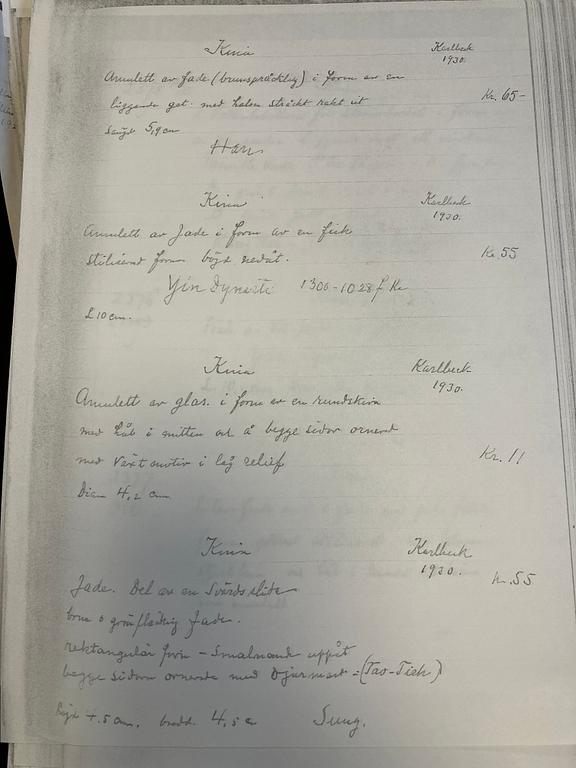 Kina Karlbeck
1930.
Amulett av Jade (brunspräcklig) i form av en
liggande get. med halsen sträckt rakt ut Kr. 65-
Längd 5,9 cm
Han
Kina Karlbeck
1930.
Amulett av Jade i form av en fisk
stiliserad form böjd nedåt. Kr. 55
Yin Dynasti 1300-1028 f Kr
L 10 cm.
Kina Karlbeck
1930.
Amulett av glas. i form av en rundskiva
med hål i mitten och å begge sidor ornerad
med växt motiv i låg relief Kr. 11
Diam 4,2 cm
Kina Karlbeck
1930. Kr. 55
Jade. Del av en Svärds slida
brun o gråfläckig Jade.
rektangulär form - Smalnande uppåt
begge sidor ornerade med Djurmask = (Tao-Tieh)
Höjd 4.5 cm. bredd. 4,5 c Sung.